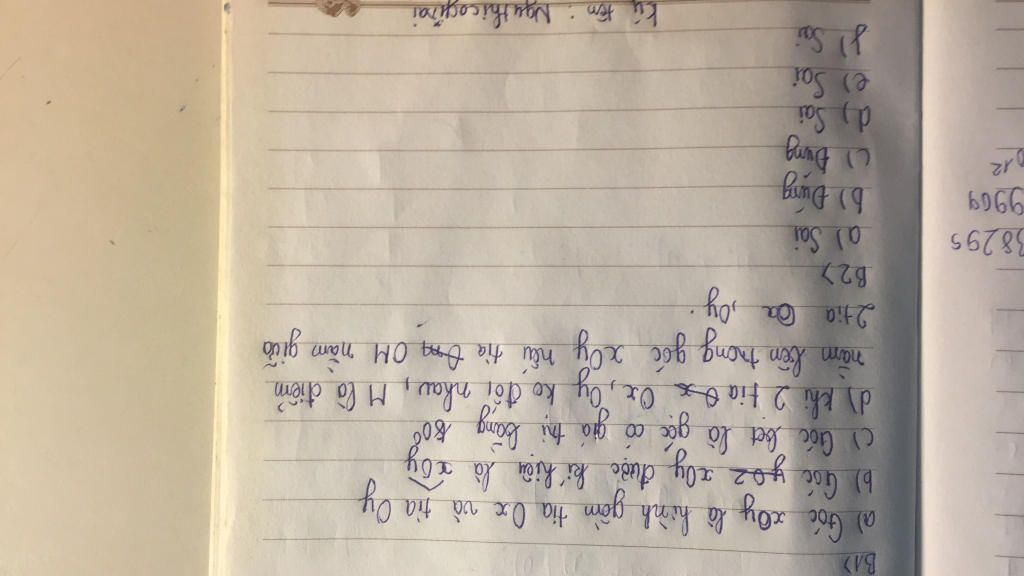 B1>
a) Góc xOy là hình gồm tia Ox và tia Oy
b) Góc xOy được kí hiệu là xOy
c) Góc bẹt là góc có giá trị bằng 180°
d) Khi 2 tia Ox, Oy ko đối nhau, M là điểm
nằm bên trong góc xOy nếu tia OM nằm giữa
2 tia Ox, Oy.
B2>
a) Sai
b) Đúng
c) Đung
d) Sai
e) Sai
f) Sai
Kí tên : Nguthicogiai
38295
9964
12